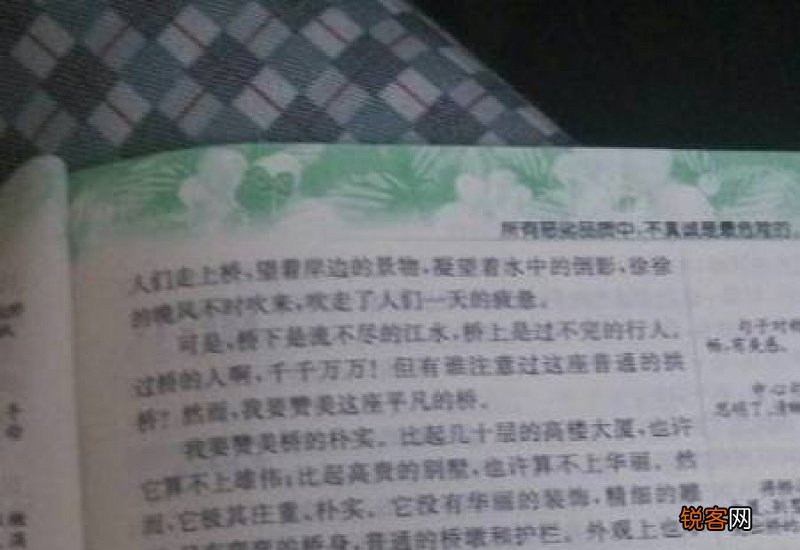 所有恶劣品质中，不真诚是最危险的。
人们走上桥，望着岸边的景物，凝望着水中的倒影，徐徐
的晚风不时吹来，吹走了人们一天的疲惫。
可是，桥下是流不尽的江水，桥上是过不完的行人。
过桥的人啊，千千万万！但有谁注意过这座普通的拱
桥？然而，我要赞美这座平凡的桥。
我要赞美桥的朴实。比起几十层的高楼大厦，也许
它算不上雄伟；比起高贵的别墅，也许算不上华丽。然
而，它极其庄重、朴实。它没有华丽的装饰，精细的雕
的桥身，普通的桥墩和护栏。外观上也
句子对
畅，有美感。
中心
思明了，清
锐客网